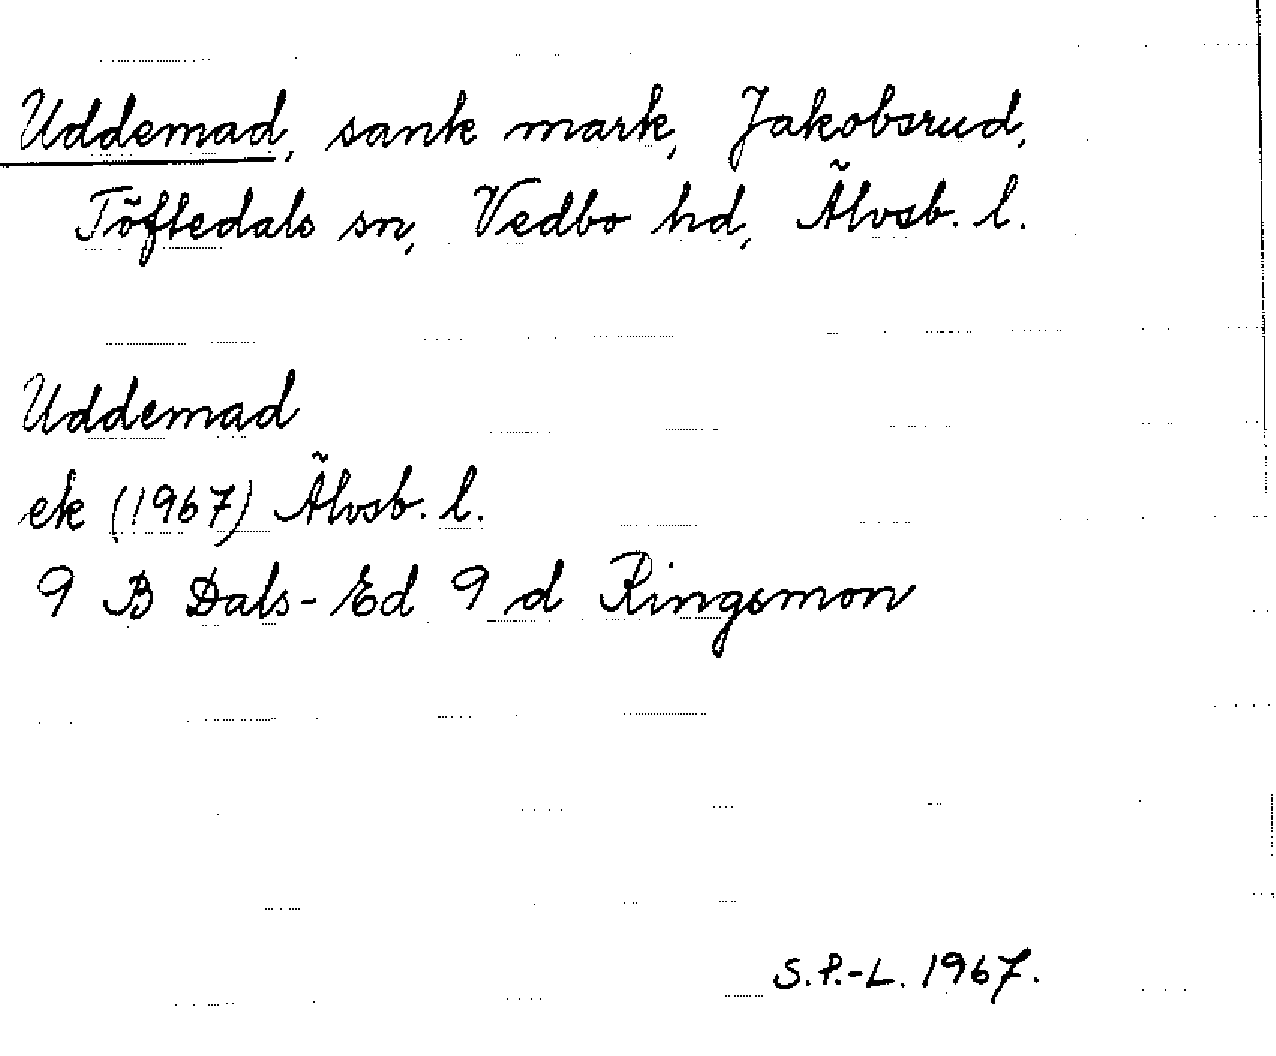 Uddemad, sank mark, Jakobsrud,
Töftedals sn, Vedbo hd, Älvsb. l.
Uddemad
ek (1967) Älvsb. l.
9 B Dals-Ed 9 d Ringsmon
S.P.-L. 1967.